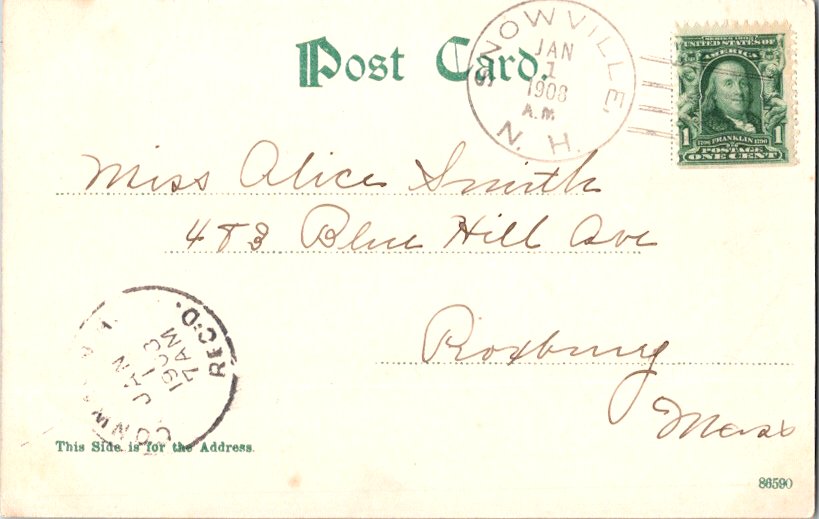 Post Card.
SNOWVILLE,
JAN
1
1908
A.M.
N. H.
SERIES 1902
UNITED STATES OF
AMERICA
1706 FRANKLIN 1790
1 1
POSTAGE
ONE CENT
Miss Alice Smith
483 Blue Hill Ave
Roxbury
Mass
REC'D.
JAN
1
7 AM
This Side is for the Address.
86590